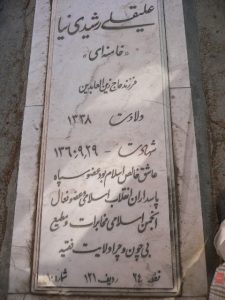 علیقلی رشیدی نیا
«خامنه‌ای»
فرزند حاج زین العابدین
ولادت ۱۳۳۸
شهادت - ۱۳۶۰٫۹٫۲۹
عاشق خالص اسلام بود عضو سپاه
پاسداران انقلاب اسلامی عضو فعال
انجمن اسلامی مخابرات و مطیع
بی چون و چرا ولایت فقیه
قطعه ۲۴ ردیف ۱۲۱ شماره